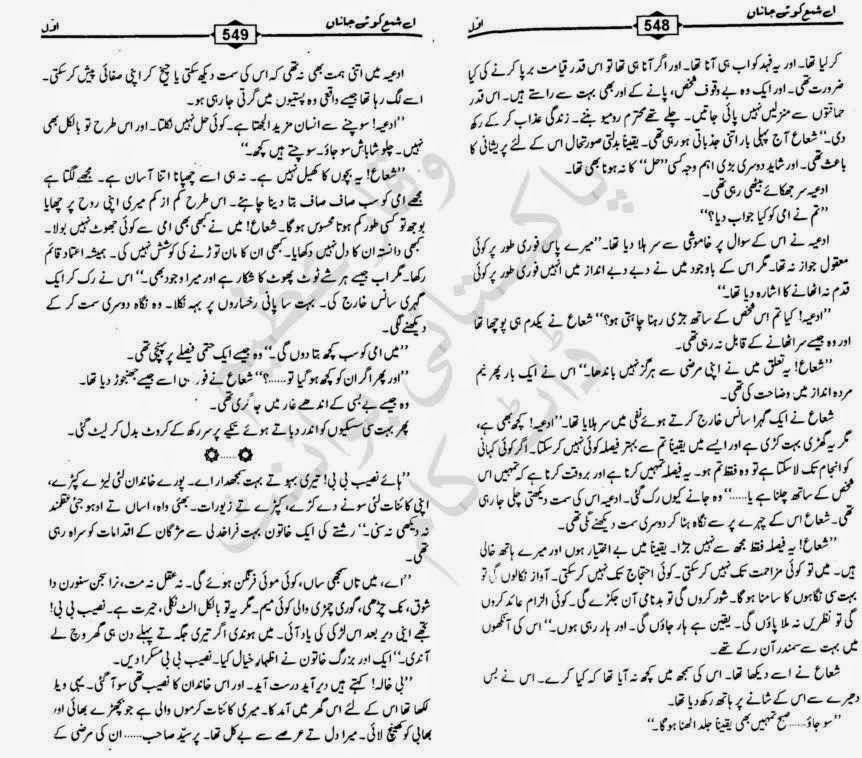 548
اے شمع کوئے جاناں
اوّل
کر لیا تھا۔ اور یہ فہد کو اب ہی آنا تھا۔ اور اگر آنا ہی تھا تو اس قدر قیامت برپا کرنے کی کیا
ضرورت تھی۔ اور ایک وہ بے وقوف شخص، پانے کے اور بھی بہت سے راستے ہیں۔ اس قدر
حماقتوں سے منزلیں نہیں پائی جاتیں۔ چلے تھے محترم رومیو بننے۔ زندگی عذاب کر کے رکھ
دی۔‘‘ شعاع آج پہلی بار اتنی جذباتی ہو رہی تھی۔ یقیناً بدلتی صورتحال اس کے لئے پریشانی کا
باعث تھی۔ اور شاید دوسری بڑی اہم وجہ کسی ’’حل‘‘ کا نہ ہونا بھی تھا۔
ادعیہ سر جھکائے بیٹھی رہی تھی۔
’’تم نے امی کو کیا جواب دیا؟‘‘
ادعیہ نے اس کے سوال پر خاموشی سے سر ہلا دیا تھا۔ ’’میرے پاس فوری طور پر کوئی
معقول جواز نہ تھا۔ مگر اس کے باوجود میں نے دبے دبے انداز میں انہیں فوری طور پر کوئی
قدم نہ اٹھانے کا اشارہ دیا تھا۔‘‘
’’ادعیہ! کیا تم اس شخص کے ساتھ جڑی رہنا چاہتی ہو؟‘‘ شعاع نے یکدم ہی پوچھا تھا
اور وہ جیسے سر اٹھانے کے قابل نہ رہی تھی۔
’’شعاع! یہ تعلق میں نے اپنی مرضی سے ہرگز نہیں باندھا۔‘‘ اس نے ایک بار پھر نیم
مردہ انداز میں وضاحت کی تھی۔
شعاع نے ایک گہرا سانس خارج کرتے ہوئے نفی میں سر ہلایا تھا۔ ’’ادعیہ! کچھ بھی ہے،
مگر یہ گھڑی بہت کڑی ہے اور ایسے میں یقیناً تم سے بہتر فیصلہ کوئی نہیں کر سکتا۔ اگر کوئی کہانی
کو انجام تک لا سکتا ہے تو وہ فقط تم ہو۔ یہ فیصلہ تمہیں کرنا ہے اور بروقت کرنا ہے کہ تمہیں اس
شخص کے ساتھ چلنا ہے یا......‘‘ وہ جانے کیوں رک گئی۔ ادعیہ اس کی سمت دیکھتی چلی جا رہی
تھی۔ شعاع اس کے چہرے پر سے نگاہ ہٹا کر دوسری سمت دیکھنے لگی تھی۔
’’شعاع! یہ فیصلہ فقط مجھ سے نہیں جڑا۔ یقیناً میں بے اختیار ہوں اور میرے ہاتھ خالی
ہیں۔ میں تو کوئی مزاحمت تک نہیں کر سکتی۔ کوئی احتجاج تک نہیں کر سکتی۔ آواز نکالوں گی تو
بہت سی نگاہوں کا سامنا ہو گا۔ شور کروں گی تو بدنامی آن جکڑے گی۔ کوئی الزام عائد کروں
تو گی تو نظریں نہ ملا پاؤں گی۔ یقین ہے ہار جاؤں گی۔ اور ہار رہی ہوں۔‘‘ اس کی آنکھوں
میں بہت سے سمندر آن رکے تھے۔
شعاع نے اسے دیکھا تھا۔ اس کی سمجھ میں کچھ نہ آیا تھا کہ کیا کرے۔ اس نے بس
دھیرے سے اس کے شانے پر ہاتھ رکھ دیا تھا۔
’’سو جاؤ ...... صبح تمہیں بھی یقیناً جلد اٹھنا ہو گا۔‘‘
549
اے شمع کوئے جاناں
اوّل
ادعیہ میں اتنی ہمت بھی نہ تھی کہ اس کی سمت دیکھ سکتی یا چیخ کر اپنی صفائی پیش کر سکتی۔
اسے لگ رہا تھا جیسے واقعی وہ پستیوں میں گرتی جا رہی ہو۔
’’ادعیہ! سوچنے سے انسان مزید الجھتا ہے۔ کوئی حل نہیں نکلتا۔ اور اس طرح تو بالکل بھی
نہیں۔ چلو شاباش سو جاؤ۔ سوچتے ہیں کچھ۔‘‘
’’شعاع! یہ بچوں کا کھیل نہیں ہے۔ نہ ہی اسے چھپانا اتنا آسان ہے۔ مجھے لگتا ہے
مجھے امی کو سب صاف صاف بتا دینا چاہئے۔ اس طرح کم از کم میری اپنی روح پر چھایا
بوجھ تو کسی طور کم ہوتا محسوس ہو گا۔ شعاع! میں نے کبھی بھی امی سے کوئی جھوٹ نہیں بولا۔
کبھی دانستہ ان کا دل نہیں دکھایا۔ کبھی ان کا مان توڑنے کی کوشش نہیں کی۔ ہمیشہ اعتماد قائم
رکھا۔ مگر اب جیسے ہر شے ٹوٹ پھوٹ کا شکار ہے اور میرا وجود بھی۔‘‘ اس نے رک کر ایک
گہری سانس خارج کی۔ بہت سا پانی رخساروں پر بہہ نکلا۔ وہ نگاہ دوسری سمت کر کے
دیکھنے لگی۔
’’میں امی کو سب کچھ بتا دوں گی۔‘‘ وہ جیسے ایک حتمی فیصلے پر پہنچی تھی۔
’’اور پھر اگر ان کو کچھ ہو گیا تو......؟‘‘ شعاع نے فوراً ہی اسے جیسے جھنجوڑ دیا تھا۔
وہ جیسے بے بسی کے اندھے غار میں جا گری تھی۔
پھر بہت سی سسکیوں کو اندر دباتے ہوئے تکیے پر سر رکھ کے کروٹ بدل کر لیٹ گئی۔
’’ہائے نصیب بی بی! تیری بہو تے بہت سمجھدار اے۔ پورے خاندان لئی لیڑے کپڑے،
اپنی کائنات لئی سونے دے کڑے، کپڑے تے زیورات۔ بھئی واہ، اساں تے اوہو جئی عقلمند
نہ دیکھی نہ سنی۔‘‘ رشتے کی ایک خاتون بہت فراخدلی سے مژگان کے اقدامات کو سراہ رہی
تھی۔
’’اے، میں تاں سمجھی ساں، کوئی موئی فرنگن ہوئے گی۔ نہ عقل نہ مت، نرا سجن سنورن دا
شوق، نک چڑھی، گوری چمڑی والی کوئی میم۔ مگر یہ تو بالکل الٹ نکلی، حیرت ہے۔ نصیب بی بی!
تجھے اپنی دیر بعد اس لڑکی کی یاد آئی۔ میں ہوندی اگر تیری جگہ تے پہلے دن ہی گھر وچ لے
آندی۔‘‘ ایک اور بزرگ خاتون نے اظہارِ خیال کیا۔ نصیب بی بی مسکرا دیں۔
’’بی خالہ! کہتے ہیں دیر آید درست آید۔ اور اس خاندان کا نصیب تھی سو آ گئی۔ یہی ویلا
لکھا تھا اس کے لئے اس گھر میں آمد کا۔ میری کائنات کرموں والی ہے جو بچھڑے بھائی اور
بھابی کو کھینچ لائی۔ میرا دل تے عرصے سے بے کل تھا۔ پر سیّد صاحب...... ان کی مرضی کے